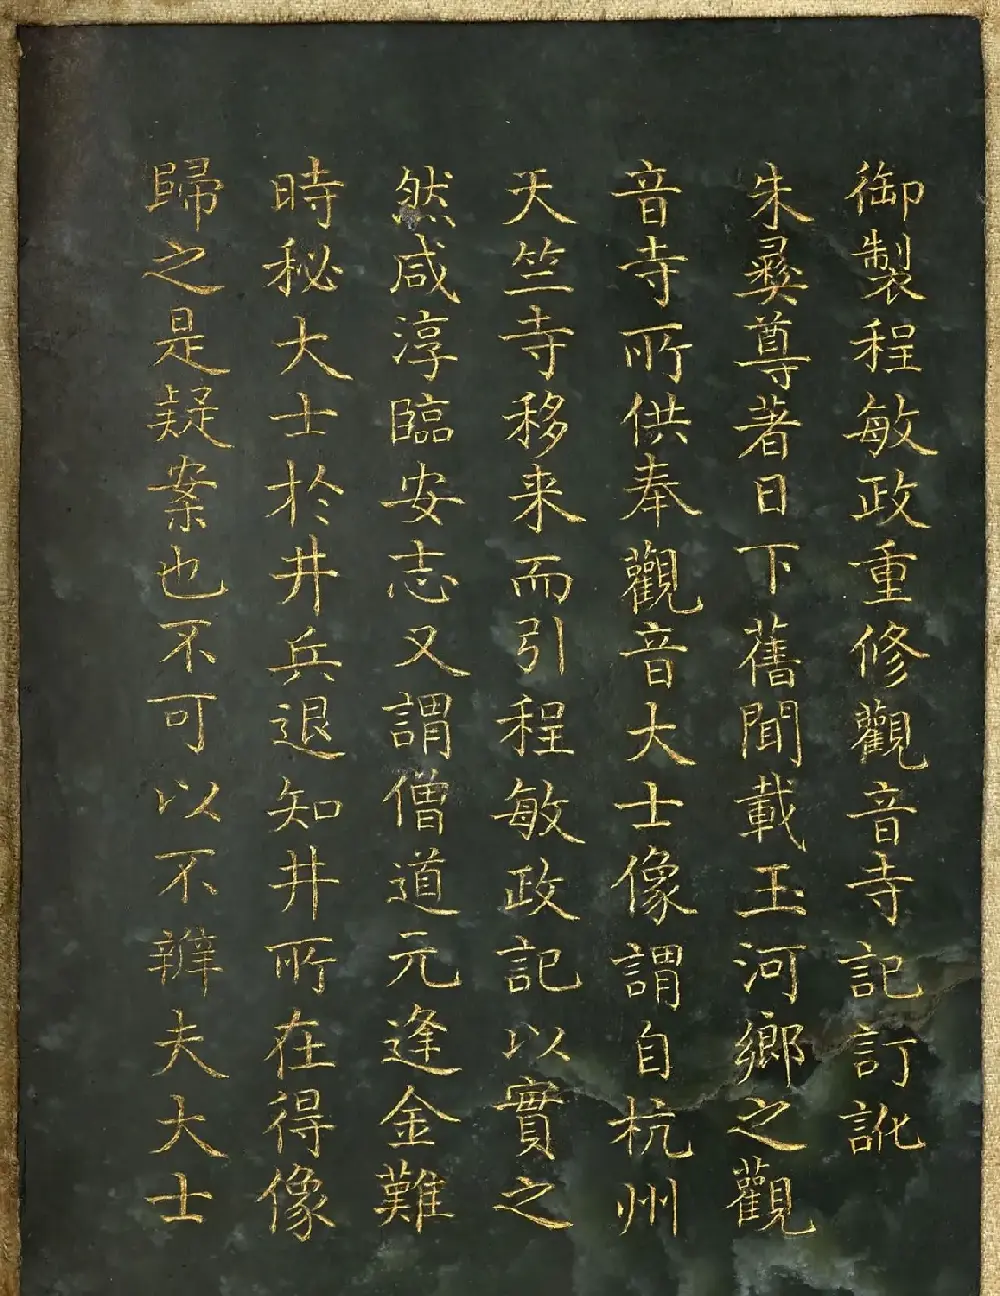 御製程敏政重修觀音寺記訂訛
朱彝尊著日下舊聞載玉河鄉之觀
音寺所供奉觀音大士像謂自杭州
天竺寺移来而引程敏政記以實之
然咸淳臨安志又謂僧道元逢金難
時秘大士於井兵退知井所在得像
歸之是疑案也不可以不辨夫大士